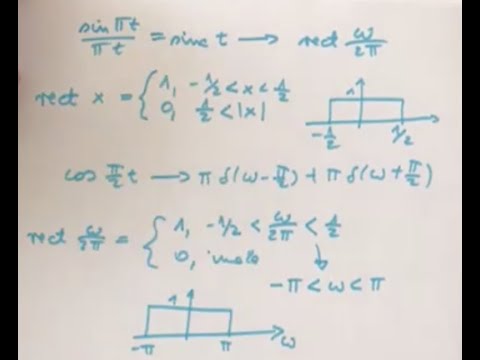 sin πt / πt = sinc t → rect ω/2π
rect x = { 1, -1/2 < x < 1/2
0, 1/2 < |x|
1
-1/2 1/2
cos π/2 t → π δ(ω - π/2) + π δ(ω + π/2)
rect ω/2π = { 1, -1/2 < ω/2π < 1/2
0, inače
↓
-π < ω < π
1
-π π ω